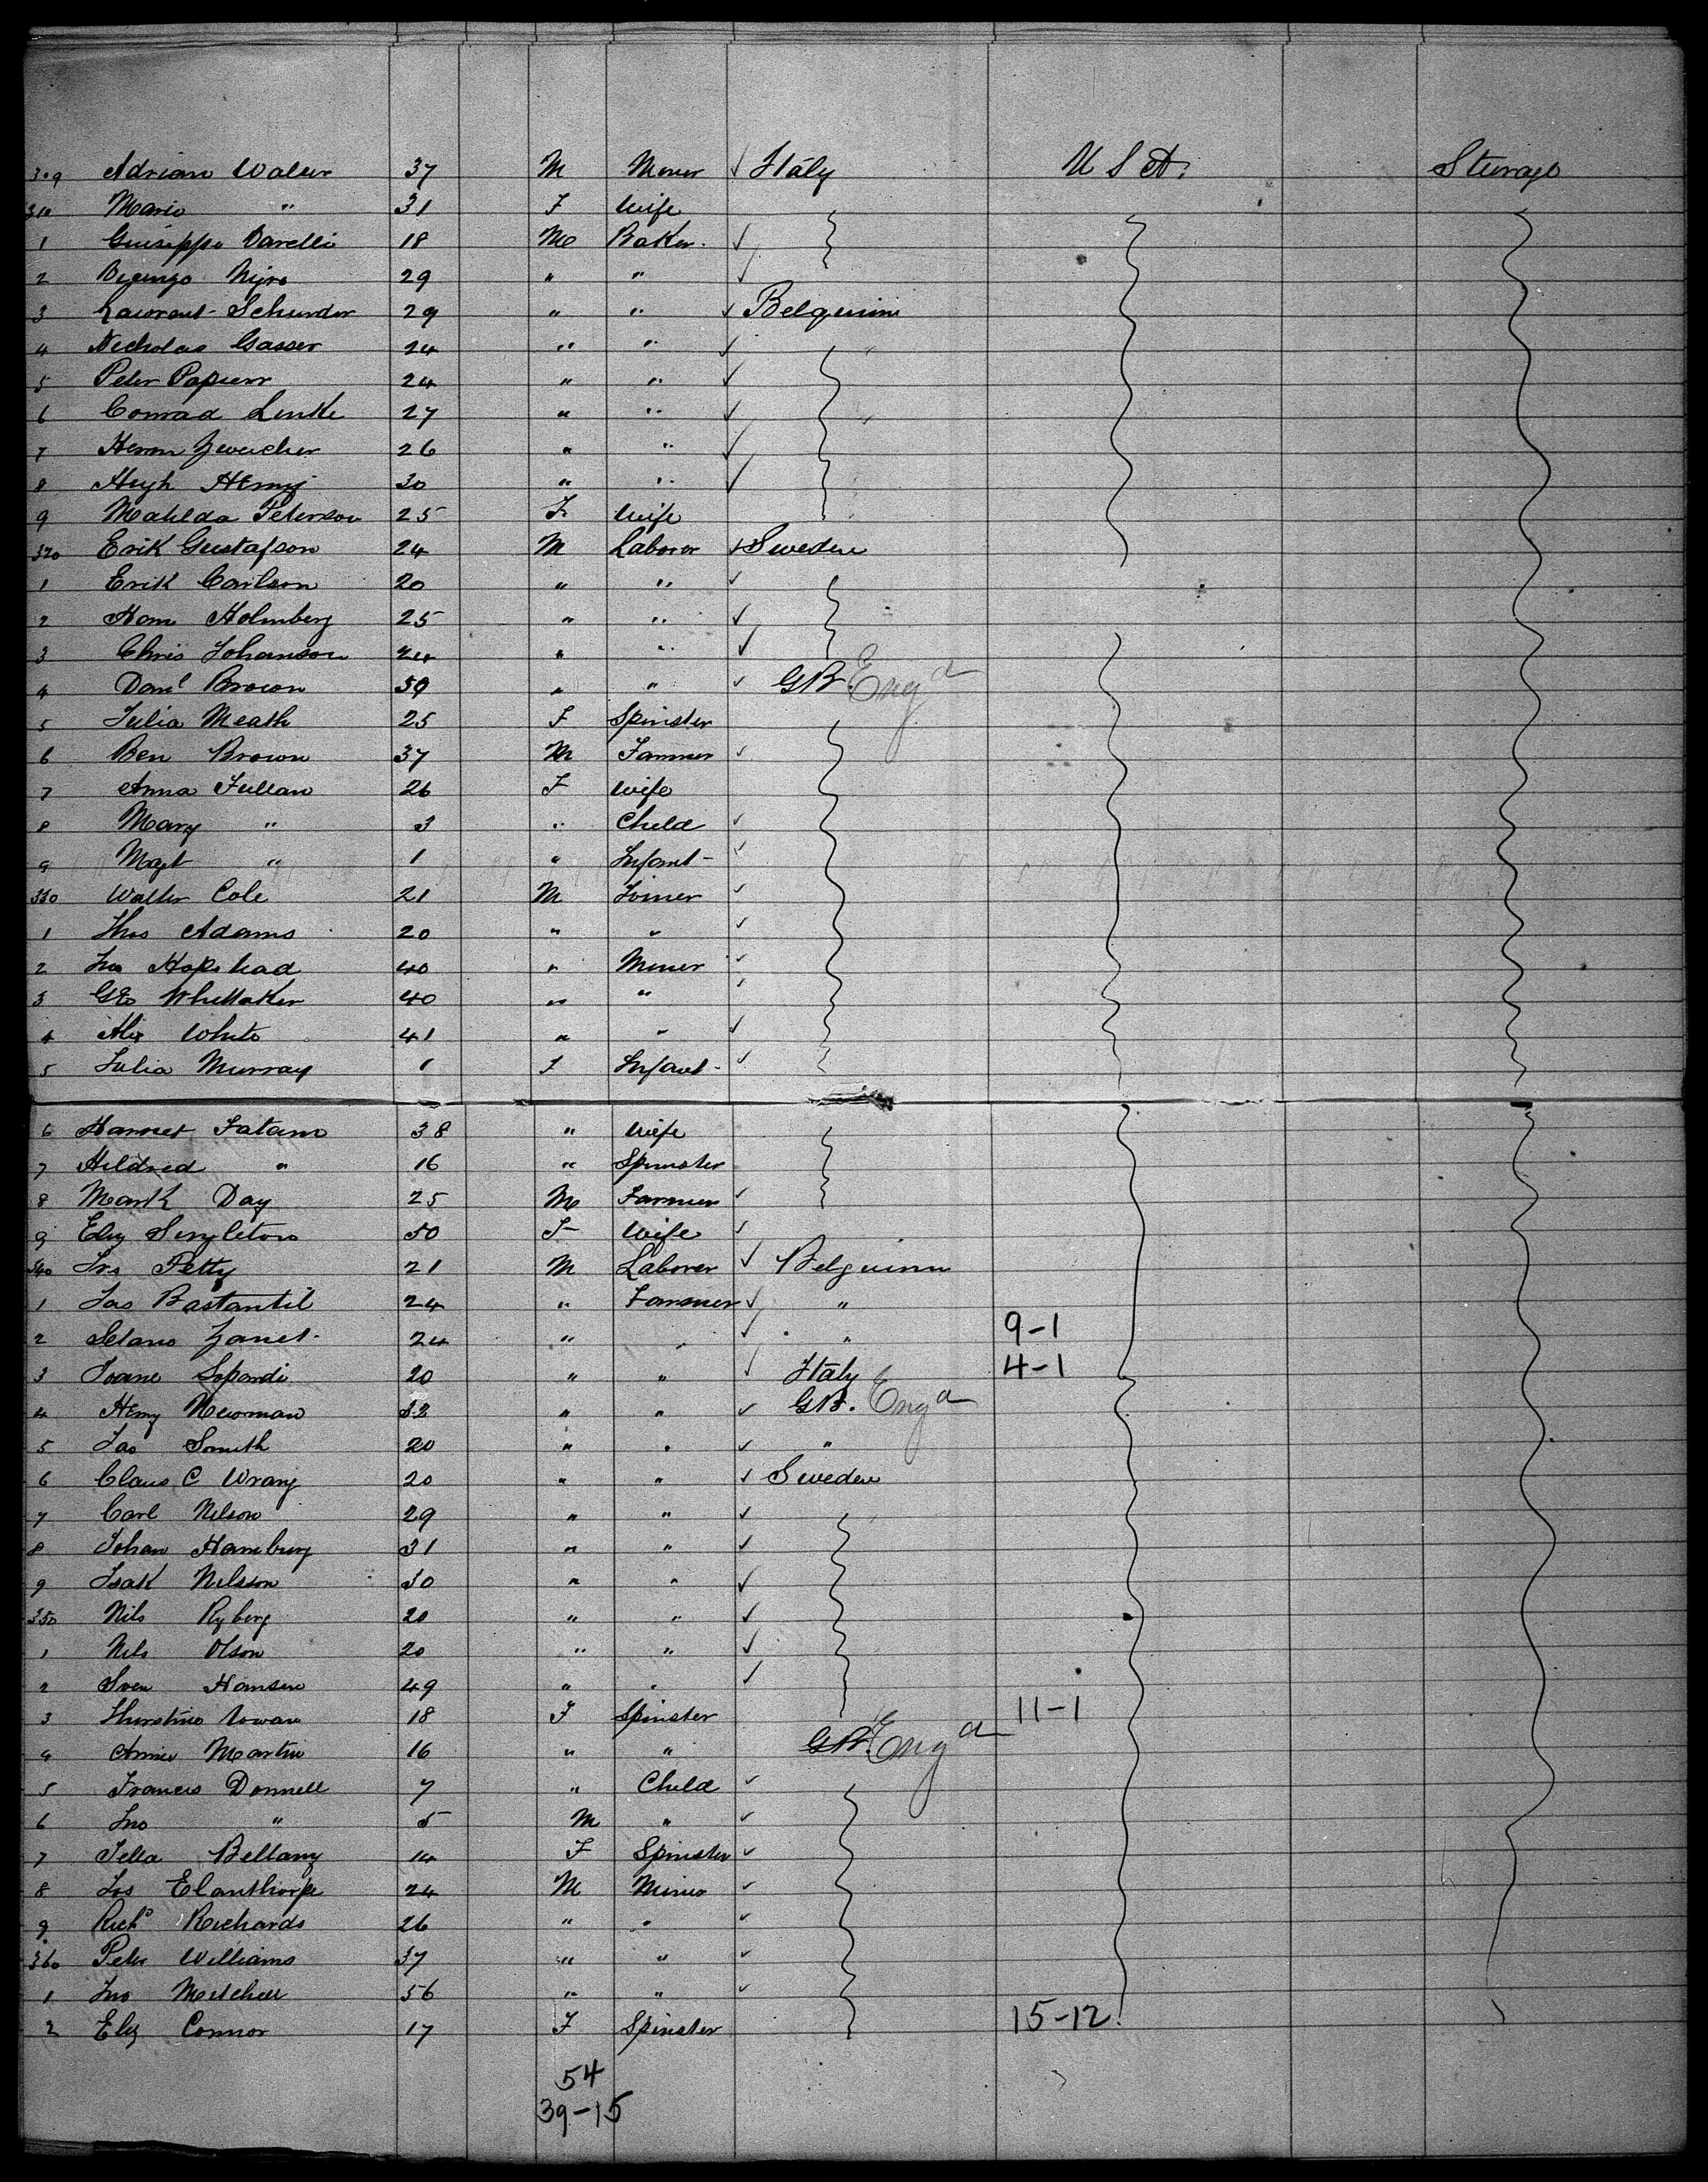 309 Adrian Waller 37 M Miner ✓ Italy U S A. Steerage
310 Marie " 31 F Wife
1 Guiseppe Varelli 18 M Baker. ✓
2 29 " " ✓
3 Laurent Schurder 29 " " ✓ Belguim
4 Nicholas Gasser 24 " " ✓ "
5 Peter Papierr 24 " " ✓
6 Conrad Linke 27 " " ✓ "
7 Herm Zweicher 26 " " ✓
8 Hugh Henry 30 " " ✓
9 Matilda Peterson 25 F Wife
320 Erik Gustafson 24 M Laborer ✓ Sweden
1 Erik Carlson 20 " " ✓
2 Hans Holmberg 25 " " ✓
3 Chris Johanson 24 " " ✓
4 Danl Brown 59 " " ✓ GB Engd
5 Julia Meath 25 F Spinster
6 Ben Brown 37 M Farmer ✓
7 Anna Fullan 26 F Wife
8 Mary " 3 " Child ✓
9 Magt " 1 " Infant ✓
330 Walter Cole 21 M Joiner ✓
1 Thos Adams 20 " " ✓
2 Jno Hopshead 40 " Miner ✓
3 Geo Whittaker 40 " " ✓
4 Alex White 41 " " ✓
5 Julia Murray 1 F Infant ✓
6 Harriet Tatam 38 " Wife
7 Hildred " 16 " Spinster
8 Mark Day 25 M Farmer ✓
9 Eliz Singleton 50 F Wife ✓
340 Petty 21 M Laborer ✓ Belguim
1 Jas Bastantil 24 " Farmer ✓ "
2 Setano Zanet 24 " " ✓ " 9-1
3 Joane Sopardi 20 " " ✓ Italy 4-1
4 Henry Newman 32 " " ✓ GB. Engd
5 Jas Smith 20 " " ✓ "
6 Claus C Wrang 20 " " ✓ Sweden
7 Carl Nelson 29 " " ✓
8 Johan Hamburg 31 " " ✓
9 Isak Nelsson 30 " " ✓
350 Nils Ryberg 20 " " ✓
1 Nils Olson 20 " " ✓
2 Sven Hansen 49 " " ✓
3 18 F Spinster 11-1
4 Annie Martin 16 " " GB Engd
5 Frances Donnell 7 " Child ✓
6 Jno " 5 M " ✓
7 Bellamy 14 F Spinster ✓
8 Jos Elanthorpe 24 M Miner ✓
9 Richd Richards 26 " " ✓
360 Peter Williams 37 " " ✓
1 Jno Mitchell 56 " " ✓
2 Eliz Connor 17 F Spinster 15-12
54
39-15